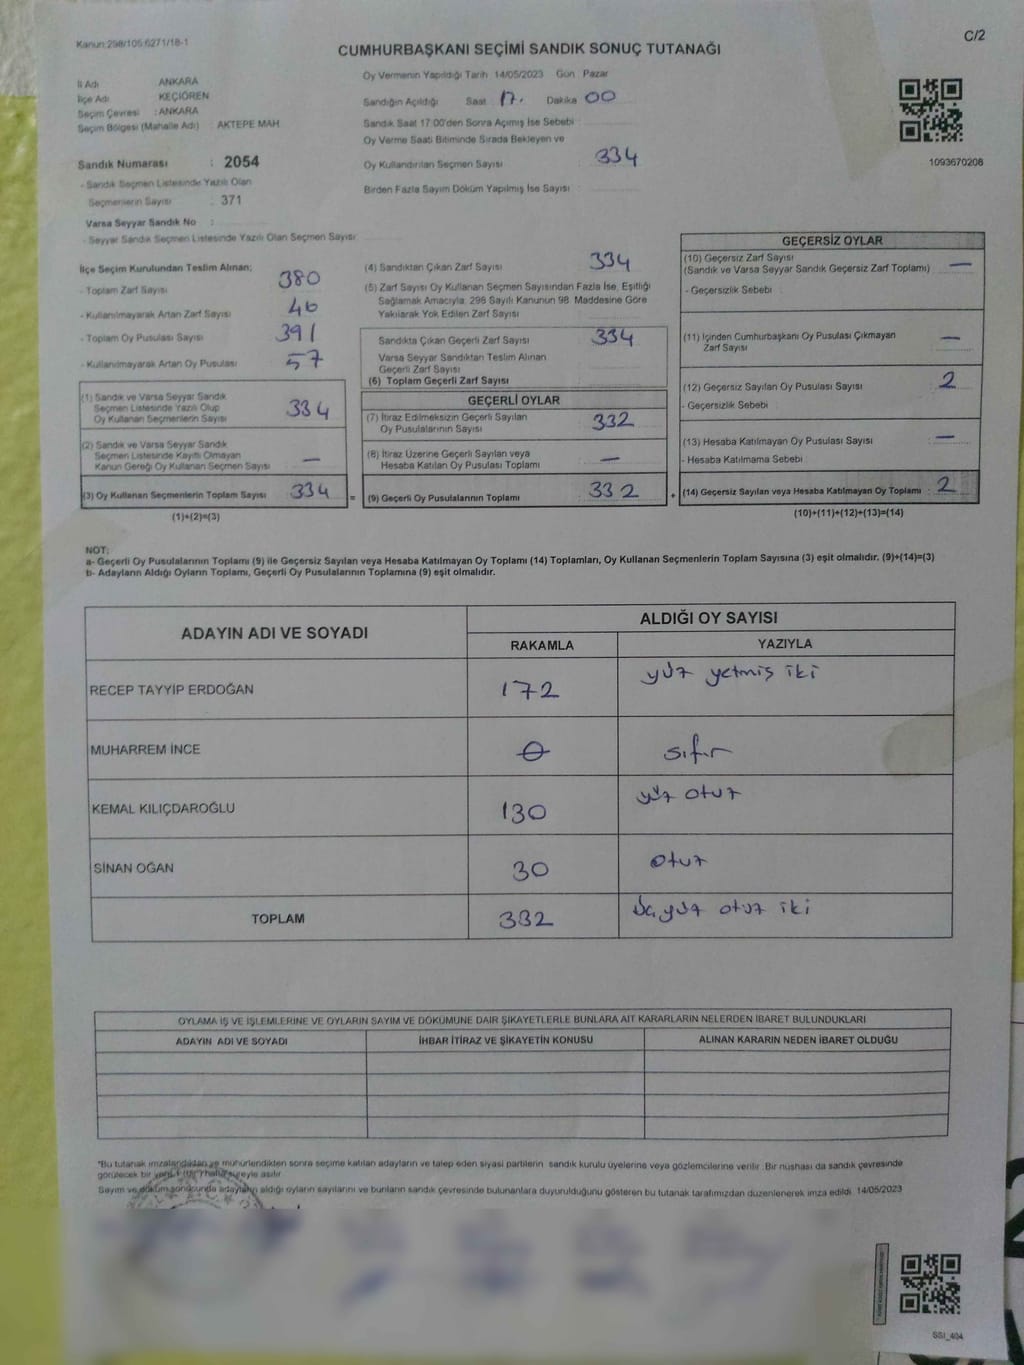 Kanun:298/105.6271/18-1
C/2
CUMHURBAŞKANI SEÇİMİ SANDIK SONUÇ TUTANAĞI
İl Adı ANKARA
İlçe Adı KEÇİÖREN
Seçim Çevresi : ANKARA
Seçim Bölgesi (Mahalle Adı) : AKTEPE MAH
Sandık Numarası : 2054
- Sandık Seçmen Listesinde Yazılı Olan
Seçmenlerin Sayısı : 371
Varsa Seyyar Sandık No :
- Seyyar Sandık Seçmen Listesinde Yazılı Olan Seçmen Sayısı
Oy Vermenin Yapıldığı Tarih 14/05/2023 Gün Pazar
Sandığın Açıldığı Saat 17. Dakika 00
Sandık Saat 17:00'den Sonra Açımış İse Sebebi
Oy Verme Saati Bitiminde Sırada Bekleyen ve
Oy Kullandırılan Seçmen Sayısı 334
Birden Fazla Sayım Döküm Yapılmış İse Sayısı
1093670208
İlçe Seçim Kurulundan Teslim Alınan;
- Toplam Zarf Sayısı 380
- Kullanılmayarak Artan Zarf Sayısı 46
- Toplam Oy Pusulası Sayısı 391
- Kullanılmayarak Artan Oy Pusulası 57
(1) Sandık ve Varsa Seyyar Sandık
Seçmen Listesinde Yazılı Olup
Oy Kullanan Seçmenlerin Sayısı 334
(2) Sandık ve Varsa Seyyar Sandık
Seçmen Listesinde Kayıtlı Olmayan
Kanun Gereği Oy Kullanan Seçmen Sayısı —
(3) Oy Kullanan Seçmenlerin Toplam Sayısı 334 =
(1)+(2)=(3)
(4) Sandıktan Çıkan Zarf Sayısı 334
(5) Zarf Sayısı Oy Kullanan Seçmen Sayısından Fazla İse, Eşitliği
Sağlamak Amacıyla, 298 Sayılı Kanunun 98. Maddesine Göre
Yakılarak Yok Edilen Zarf Sayısı
Sandıkta Çıkan Geçerli Zarf Sayısı 334
Varsa Seyyar Sandıktan Teslim Alınan
Geçerli Zarf Sayısı
(6) Toplam Geçerli Zarf Sayısı
GEÇERLİ OYLAR
(7) İtiraz Edilmeksizin Geçerli Sayılan
Oy Pusulalarının Sayısı 332
(8) İtiraz Üzerine Geçerli Sayılan veya
Hesaba Katılan Oy Pusulası Toplamı —
(9) Geçerli Oy Pusulalarının Toplamı 332 +
GEÇERSİZ OYLAR
(10) Geçersiz Zarf Sayısı
(Sandık ve Varsa Seyyar Sandık Geçersiz Zarf Toplamı) —
- Geçersizlik Sebebi :
(11) İçinden Cumhurbaşkanı Oy Pusulası Çıkmayan
Zarf Sayısı —
(12) Geçersiz Sayılan Oy Pusulası Sayısı 2
- Geçersizlik Sebebi :
(13) Hesaba Katılmayan Oy Pusulası Sayısı —
- Hesaba Katılmama Sebebi :
(14) Geçersiz Sayılan veya Hesaba Katılmayan Oy Toplamı : 2
(10)+(11)+(12)+(13)=(14)
NOT:
a- Geçerli Oy Pusulalarının Toplamı (9) ile Geçersiz Sayılan veya Hesaba Katılmayan Oy Toplamı (14) Toplamları, Oy Kullanan Seçmenlerin Toplam Sayısına (3) eşit olmalıdır. (9)+(14)=(3)
b- Adayların Aldığı Oyların Toplamı, Geçerli Oy Pusulalarının Toplamına (9) eşit olmalıdır.
ADAYIN ADI VE SOYADI
ALDIĞI OY SAYISI
RAKAMLA YAZIYLA
RECEP TAYYİP ERDOĞAN 172 yüz yetmiş iki
MUHARREM İNCE 0 sıfır
KEMAL KILIÇDAROĞLU 130 yüz otuz
SİNAN OĞAN 30 otuz
TOPLAM 332 üçyüz otuz iki
OYLAMA İŞ VE İŞLEMLERİNE VE OYLARIN SAYIM VE DÖKÜMÜNE DAİR ŞİKAYETLERLE BUNLARA AİT KARARLARIN NELERDEN İBARET BULUNDUKLARI
ADAYIN ADI VE SOYADI İHBAR İTİRAZ VE ŞİKAYETİN KONUSU ALINAN KARARIN NEDEN İBARET OLDUĞU
*Bu tutanak imzalandıktan ve mühürlendikten sonra seçime katılan adayların ve talep eden siyasi partilerin sandık kurulu üyelerine veya gözlemcilerine verilir. Bir nüshası da sandık çevresinde
görülecek bir yere 1 (bir) hafta süreyle asılır.
Sayım ve döküm sonucunda adayların aldığı oyların sayılarını ve bunların sandık çevresinde bulunanlara duyurulduğunu gösteren bu tutanak tarafımızdan düzenlenerek imza edildi. 14/05/2023
SSI_404